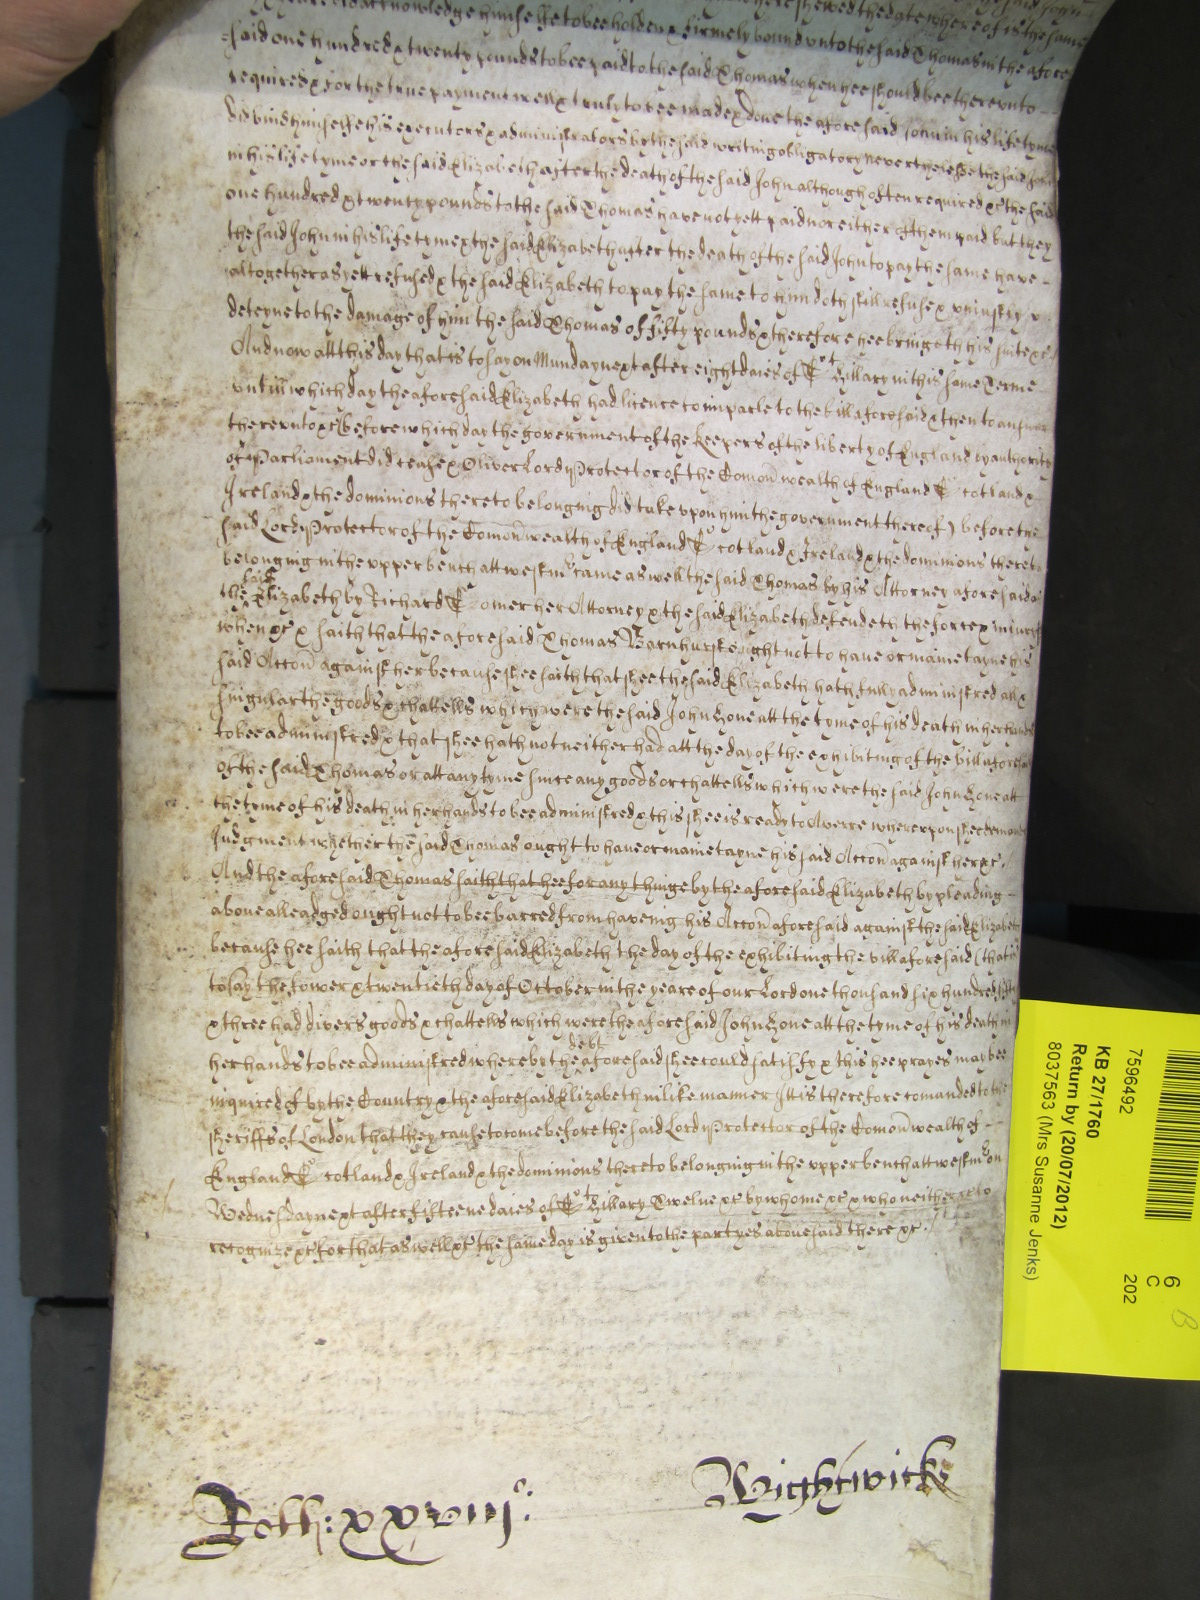 did acknowledge himselfe to bee holden & firmely bound vnto the said Thomas in the afore
said one hundred & twenty pounds to bee paid to the said Thomas when hee should bee therevnto
required & for the true payment well & truly to bee made & done the aforesaid John in his lifetyme
did binde himselfe his executors & administrators by the said writing obligatory Neverthelesse the said John
in his lifetyme or the said Elizabeth after the death of the said John although often required &c the said
one hundred & twenty pounds to the said Thomas have not yett paid nor either of them paid but they
the said John in his lifetyme & the said Elizabeth after the death of the said John to pay the same have
altogether as yett refused & the said Elizabeth to pay the same to him doth still refuse & vniustly
deteyne to the damage of him the said Thomas of fifty pounds & therefore hee bringeth his suite &c
And now att this day that is to say on Munday next after eight daies of St Hillary in this same Terme
vntill which day the aforesaid Elizabeth had licence to imparle to the bill aforesaid & then to answer
therevnto &c (before which day the government of the keepers of the liberty of England by authority
of Parliament did cease & Oliver Lord Protector of the Comon wealth of England Scotland &
Ireland & the dominions thereto belonging did take vpon him the government thereof) before the
said Lord Protector of the Comon wealth of England Scotland & Ireland & the dominions thereto
belonging in the vpper bench att westmr came as well the said Thomas by his Attorney aforesaid as
the said Elizabeth by Richard Somer her Attorney & the said Elizabeth defendeth the force & iniury
when &c & saith that the aforesaid Thomas Barnhurst ought not to have or mainetayne his
said Accon against her because shee saith that shee the said Elizabeth hath fully administred all &
singular the goods & chattells which were the said John Hone att the tyme of his death in her hands
to bee administred & that shee hath not neither had att the day of the exhibiting of the bill aforesaid
of the said Thomas or att any tyme since any goods or chattells which were the said John Hone att
the tyme of his death in her hands to bee administred & this shee is ready to Averre wherevpon shee demands
Iudgment whether the said Thomas ought to have or mainetayne his said Accon against her &c
And the aforesaid Thomas saith that hee for any thinge by the aforesaid Elizabeth by pleading
above alleadged ought not to bee barred from haveing his Accon aforesaid against the said Elizabeth
because hee saith that the aforesaid Elizabeth the day of the exhibiting the bill aforesaid (that is
to say the fower & twentieth day of October in the yeare of our Lord one thousand six hundred fifty
& three had divers goods & chattells which were the aforesaid John Hone att the tyme of his death in
her hands to bee administred whereby the debt aforesaid shee could satisfy & this hee prayes may bee
inquired of by the Country & the aforesaid Elizabeth in like manner Itt is therefore comanded to the
sheriffs of London that they cause to come before the said Lord Protector of the Comon wealth of
England Scotland & Ireland & the dominions thereto belonging in the vpper bench att westmr on
Wednesday next after fifteene daies of St Hillary Twelve &c by whome &c & who neither &c to
recognize &c for that as well &c the same day is given to the partyes above said there &c
Roll: xxviijo:
Wightwicke
7596492
KB 27/1760
Return by (20/07/2012)
8037563 (Mrs Susanne Jenks)
6
C
202
B